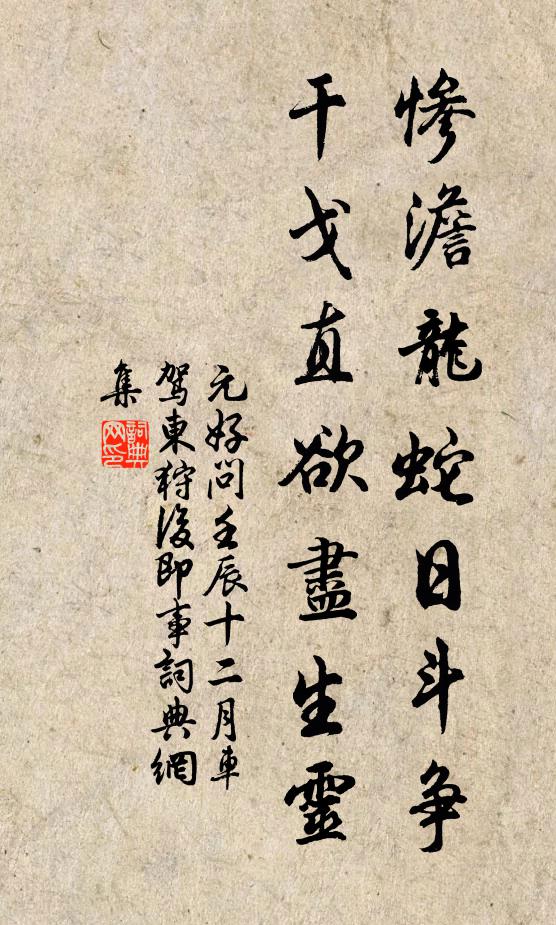 慘澹龍蛇日斗争
干戈直欲盡生靈
元好问壬辰十二月車
駕東狩後即事詞典網
集
詞典
网印